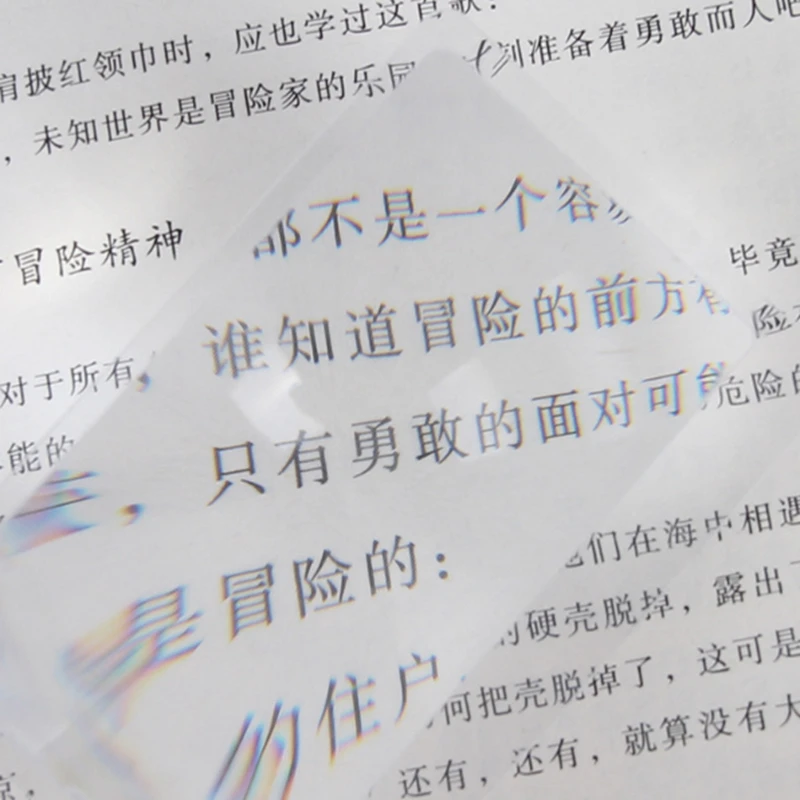 肩披红领巾时，应也学过这首歌：
，未知世界是冒险家的乐园 刻准备着勇敢而人吧
冒险精神
都不是一个容易
毕竟
谁知道冒险的前方有
险
对于所有，
只有勇敢的面对可能
危险的
能的
，
是冒险的：
们在海中相遇
的硬壳脱掉，露出
的住户
何把壳脱掉了，这可是
还有，还有，就算没有大